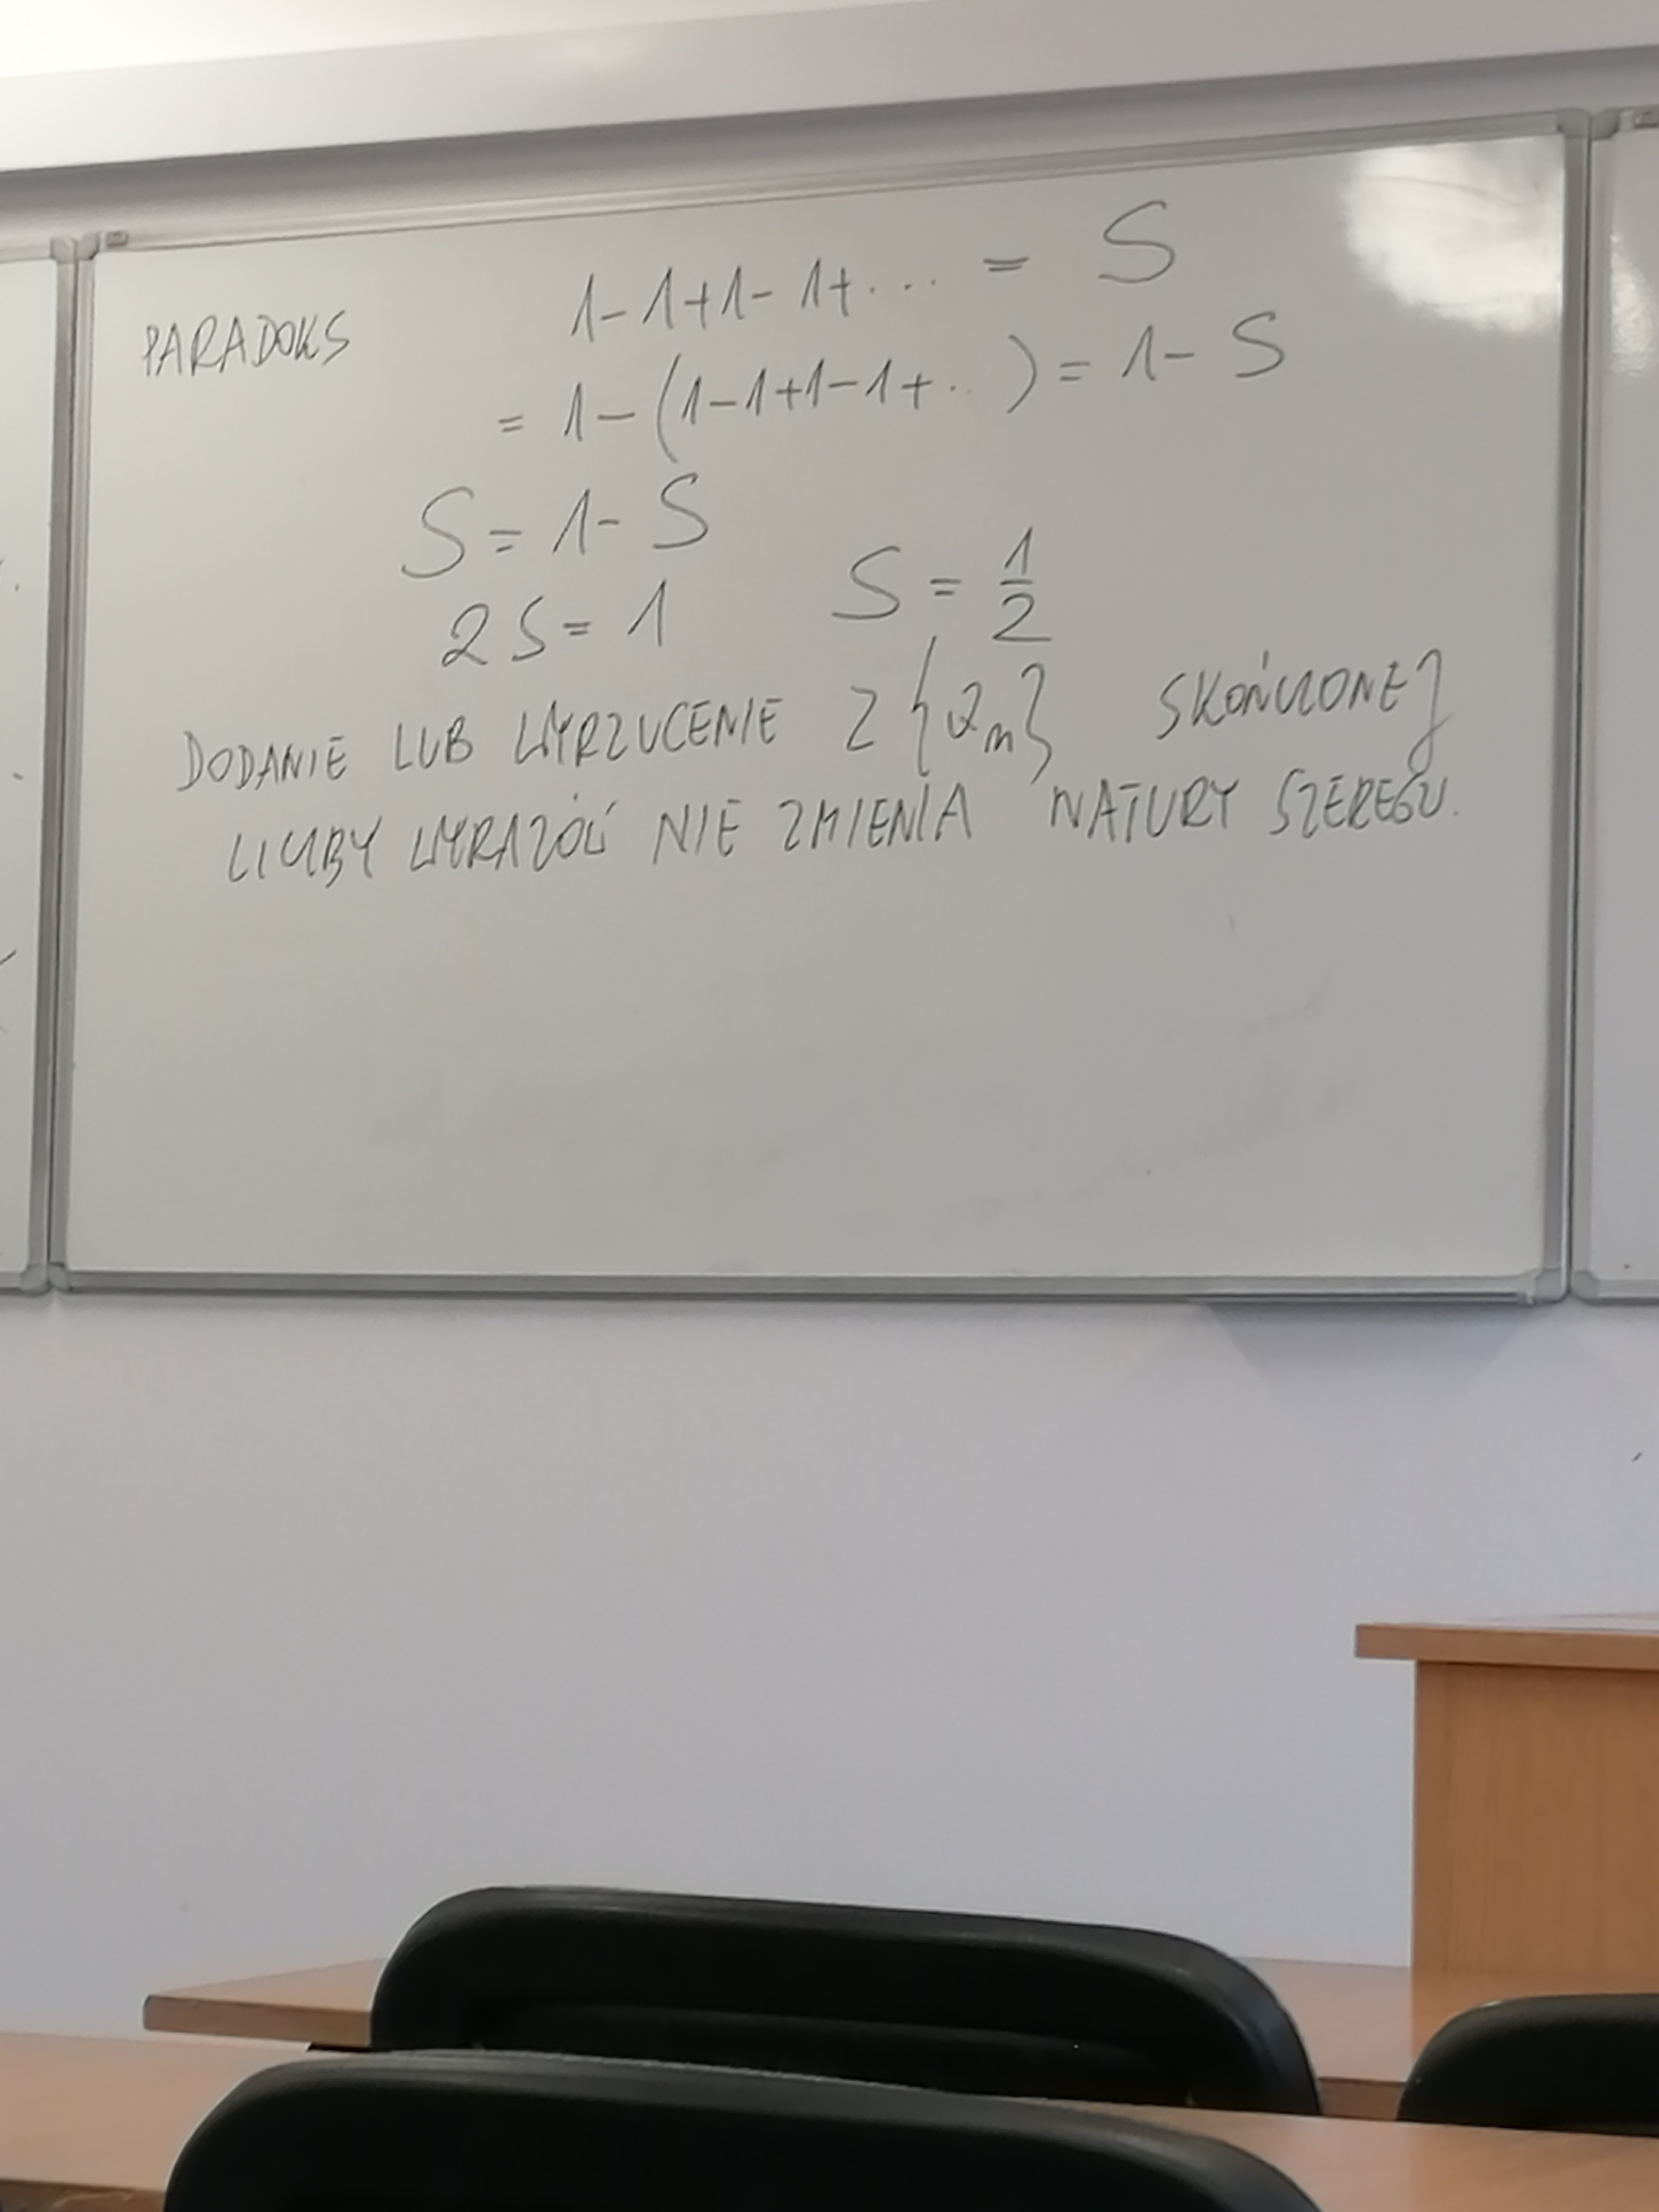 PARADOKS 1-1+1-1+... = S
= 1-(1-1+1-1+...) = 1-S
S = 1-S
2S = 1 S = 1/2
DODANIE LUB WYRZUCENIE Z {a_n} SKOŃCZONEJ
LICZBY WYRAZÓW NIE ZMIENIA NATURY SZEREGU.